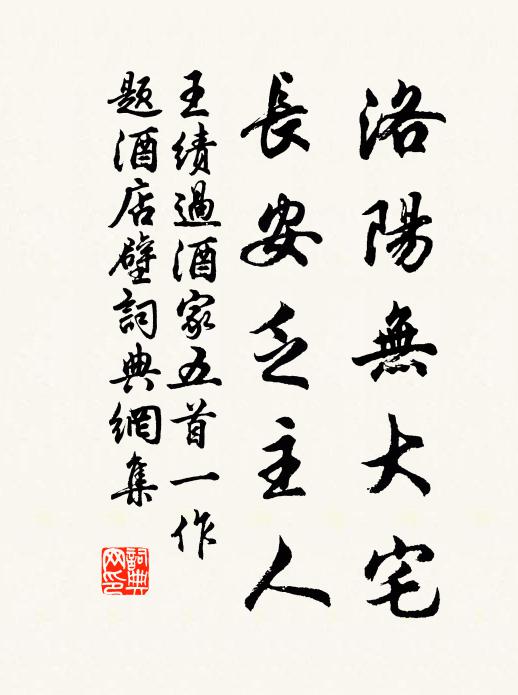 洛陽無大宅
長安乏主人
王績過酒家五首一作
題酒店壁詞典網集
詞典
网印